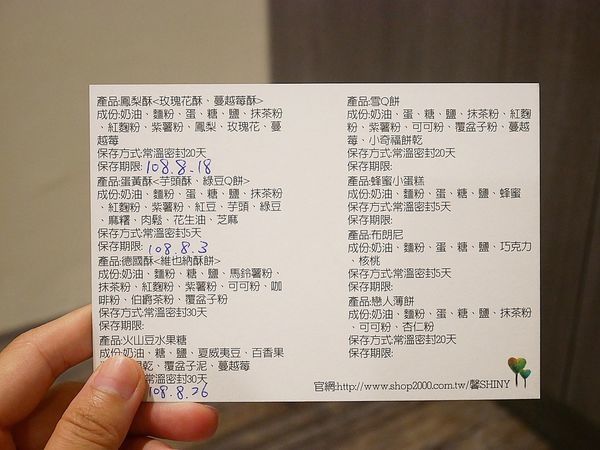 產品:鳳梨酥<玫瑰花酥、蔓越莓酥>
成份:奶油、麵粉、蛋、糖、鹽、抹茶粉
、紅麴粉、紫薯粉、鳳梨、玫瑰花、蔓
越莓
保存方式:常溫密封20天
保存期限: 108.8.18
產品:蛋黃酥<芋頭酥、綠豆Q餅>
成份:奶油、麵粉、蛋、糖、鹽、抹茶粉
、紅麴粉、紫薯粉、紅豆、芋頭、綠豆
、麻糬、肉鬆、花生油、芝麻
保存方式:常溫密封5天
保存期限: 108.8.3
產品:德國酥<維也納酥餅>
成份:奶油、麵粉、糖、鹽、馬鈴薯粉、
抹茶粉、紅麴粉、紫薯粉、可可粉、咖
啡粉、伯爵茶粉、覆盆子粉
保存方式:常溫密封30天
保存期限:
產品:火山豆水果糖
成份:奶油、糖、鹽、夏威夷豆、百香果
乾、覆盆子泥、蔓越莓
常溫密封30天
108.8.26
產品:雪Q餅
成份:奶油、蛋、糖、鹽、抹茶粉、紅麴
粉、紫薯粉、可可粉、覆盆子粉、蔓越
莓、小奇福餅乾
保存方式:常溫密封20天
保存期限:
產品:蜂蜜小蛋糕
成份:奶油、麵粉、蛋、糖、鹽、蜂蜜
保存方式:常溫密封5天
保存期限:
產品:布朗尼
成份:奶油、麵粉、蛋、糖、鹽、巧克力
、核桃
保存方式:常溫密封5天
保存期限:
產品:戀人薄餅
成份:奶油、麵粉、蛋、糖、鹽、抹茶粉
、可可粉、杏仁粉
保存方式:常溫密封20天
保存期限:
官網:http://www.shop2000.com.tw/馨SHINY